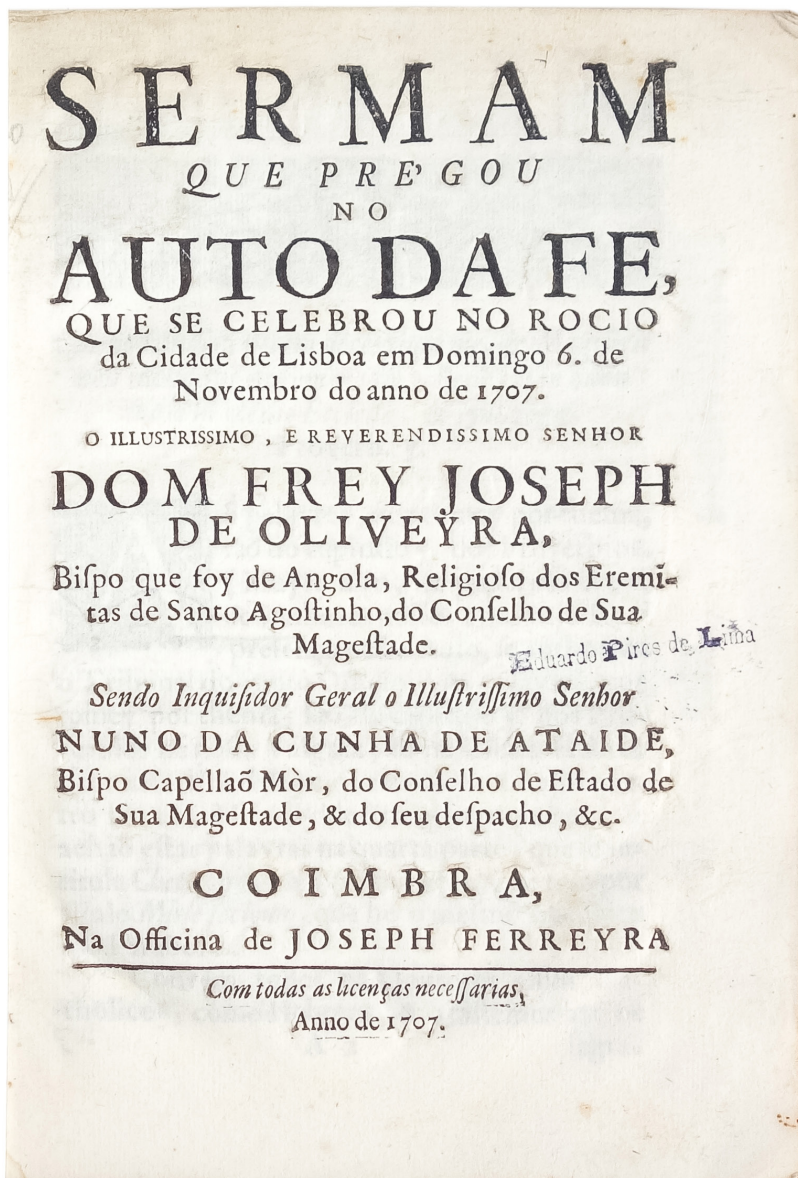 SERMAM
QUE PRE'GOU
NO
AUTO DA FE,
QUE SE CELEBROU NO ROCIO
da Cidade de Lisboa em Domingo 6. de
Novembro do anno de 1707.
O ILLUSTRISSIMO, E REVERENDISSIMO SENHOR
DOM FREY JOSEPH
DE OLIVEYRA,
Biſpo que foy de Angola, Religioſo dos Eremi-
tas de Santo Agoſtinho, do Conſelho de Sua
Mageſtade.
Eduardo Pires de Lima
Sendo Inquiſidor Geral o Illuſtriſſimo Senhor
NUNO DA CUNHA DE ATAIDE,
Biſpo Capellaõ Mòr, do Conſelho de Eſtado de
Sua Mageſtade, & do ſeu deſpacho, &c.
COIMBRA,
Na Officina de JOSEPH FERREYRA
Com todas as licenças neceſſarias,
Anno de 1707.